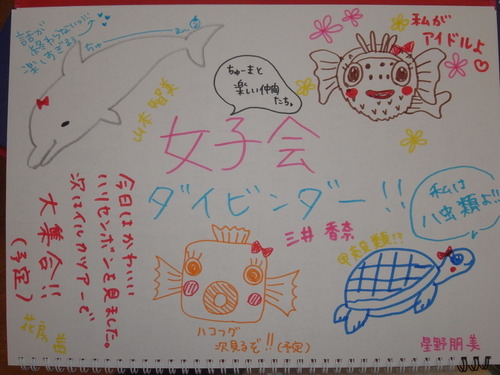 話が
終わらないっ!!!
楽しすぎるっ
ちゅ
山本 智美
ちゅーまと
楽しい仲間
たち。
私が
アイドルよ
女子会
ダイビンダー!!
私は
ハ虫類よ!!
三井 香奈
甲殻類!?
今日はかわいい
ハリセンボンを見ました。
次はイルカツアーで
大集合!!
(予定)
花房
ハコフグ
次見るぞ!!(予定)
星野朋美